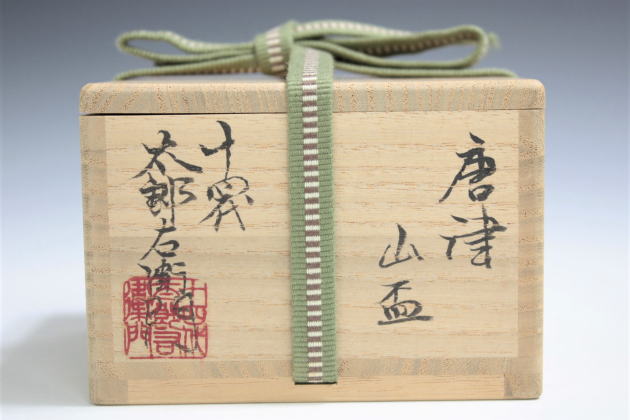 唐津
山盃
十四代
太郎右衛門
十四代
太郎右
衛門